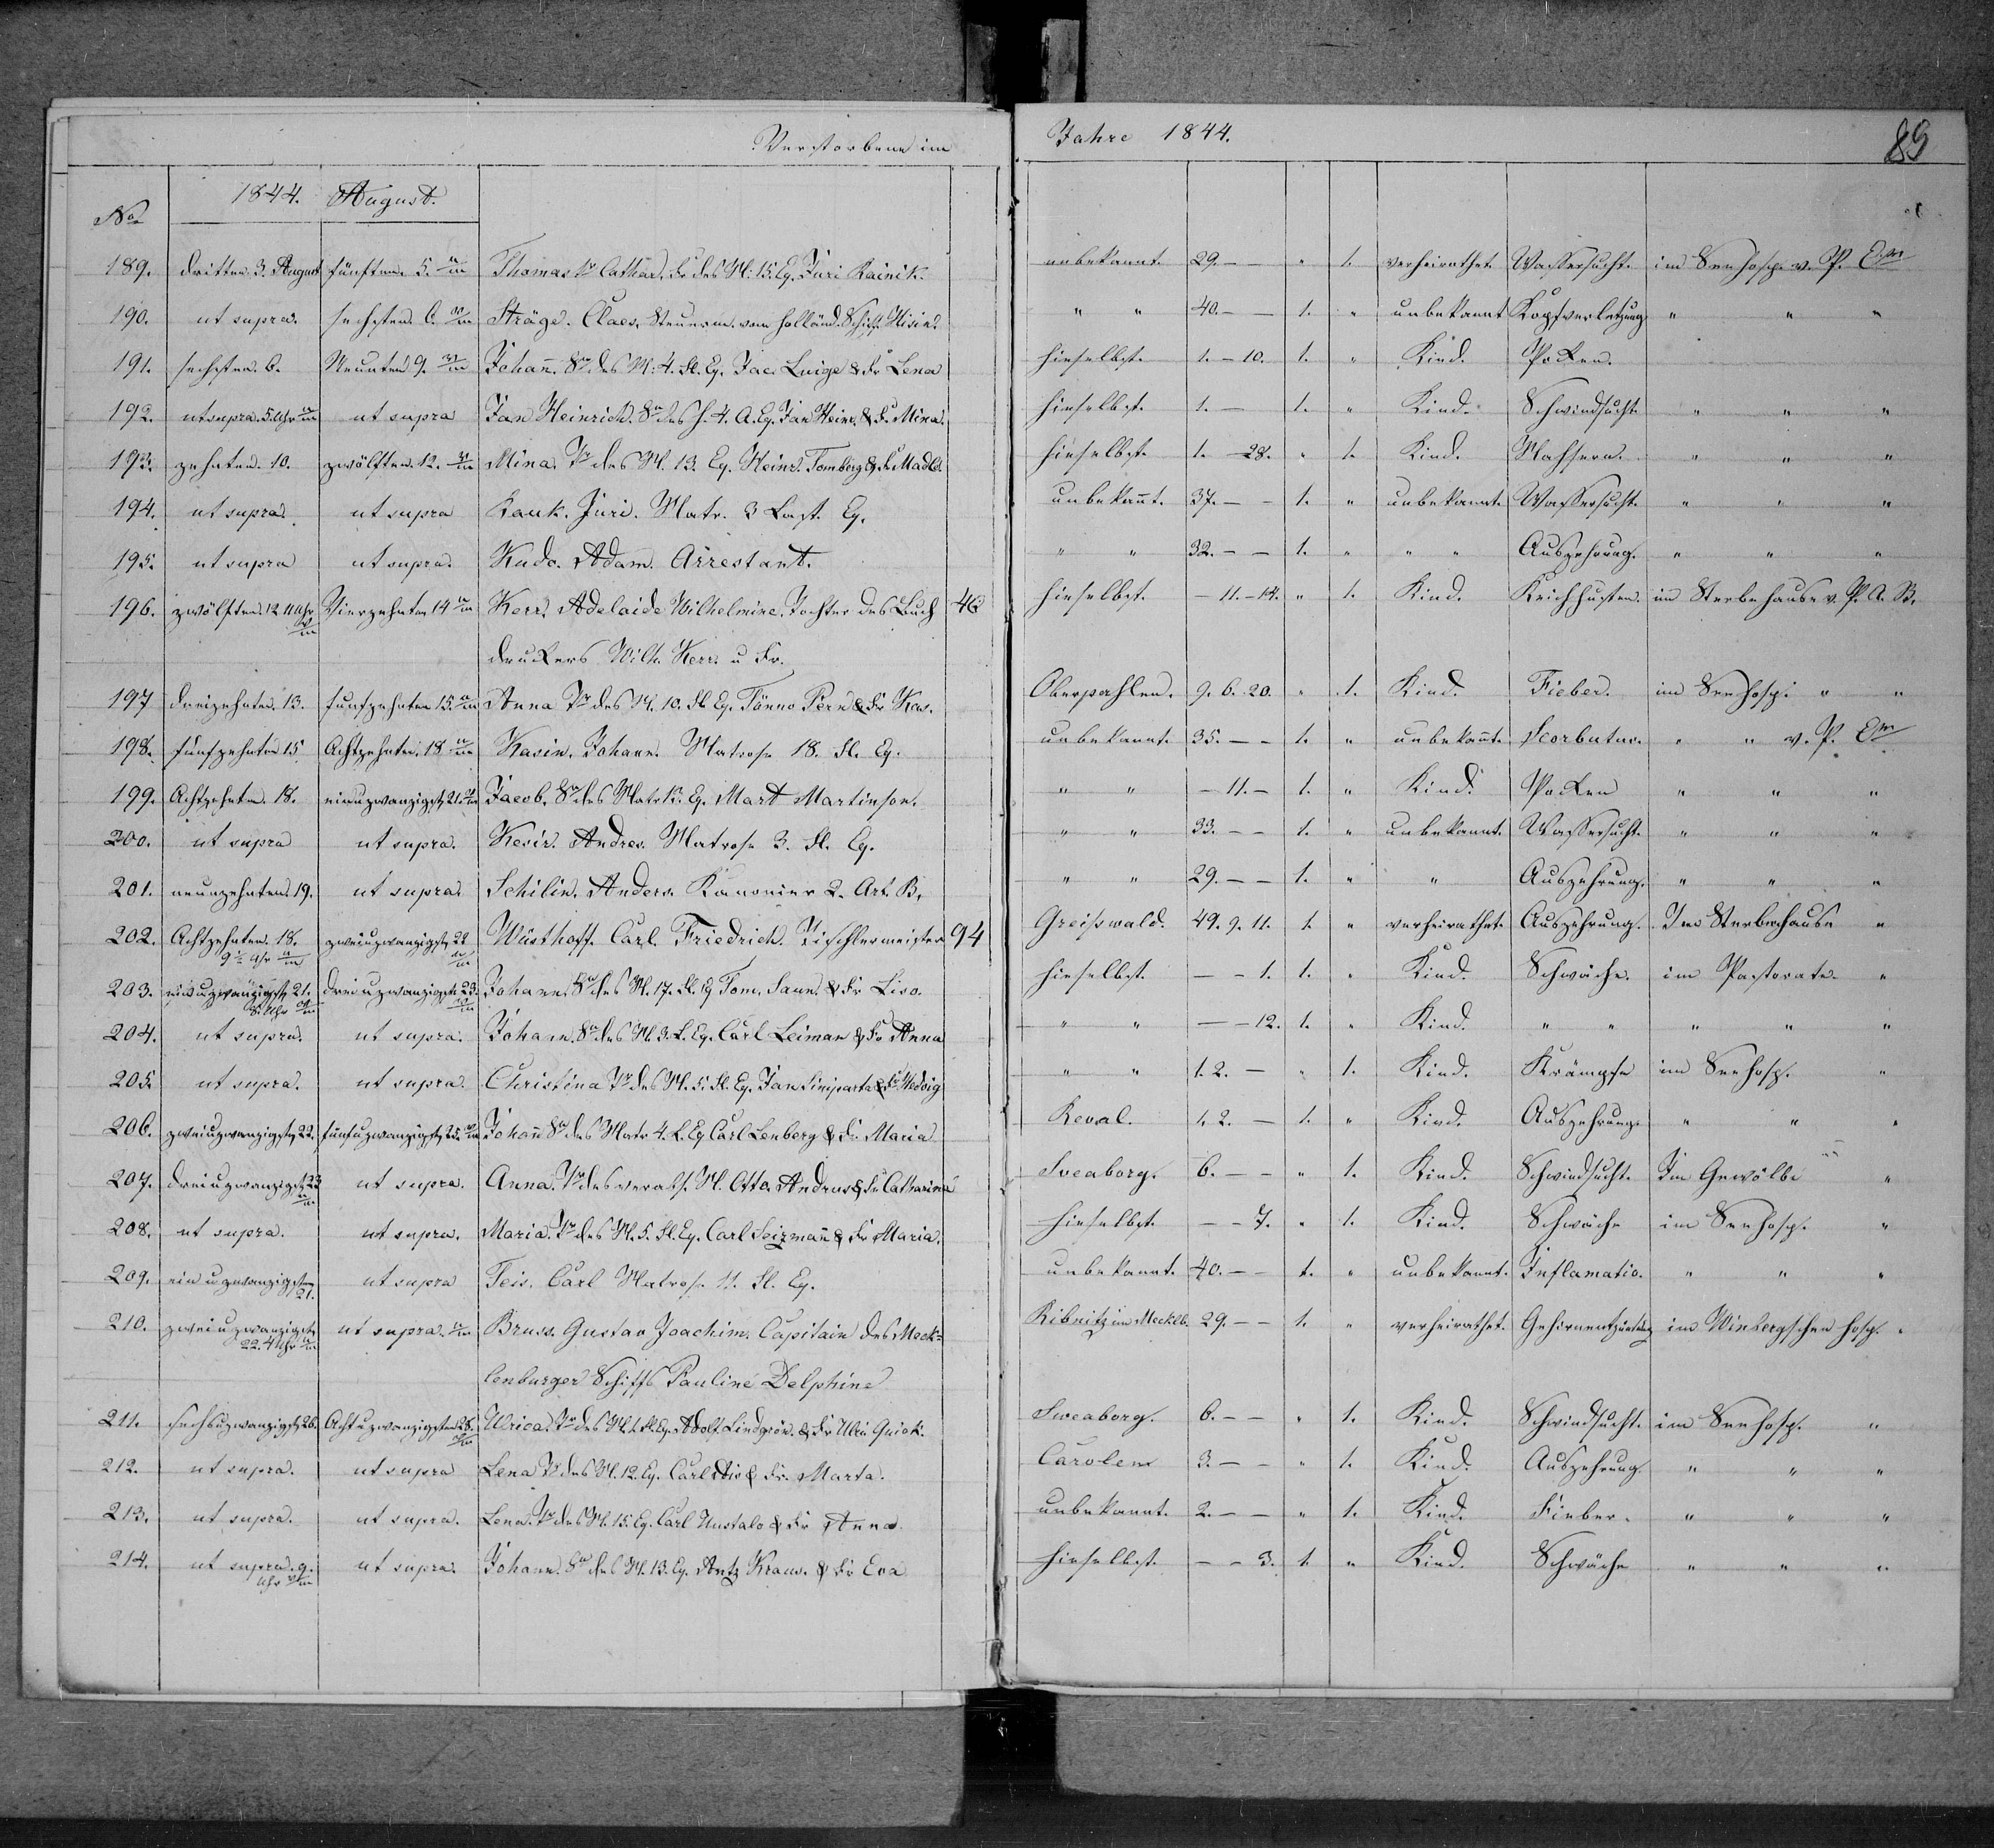 Verstorbene im Jahre 1844. 89
No 1844. August.
189. dritten 3. August fünften 5. Thomas Cathar. Fr des M. 15. Eq. Jüri Rainik. unbekannt 29. – – " 1. verheirathet Wassersucht. im Seehosp. v. P.
190. ut supra. sechsten 6. Sträge. Claes. Steuerm. vom holländ. Schiff " " 40. – – 1. " unbekannt Kopfverletzung " " "
191. sechsten 6. Neunten 9. Johañ. Sn des M. 4. Fl. Eq. Jac. Luige & Fr Lena hieselbst 1. – 10. 1. " Kind. Pocken.
192. ut supra. 5. Uhr ut supra Jan Heinrich. Sn des 4. A. Eq. Jan Heinr. & Fr Mina. hieselbst 1. – 1. " Kind. Schwindsucht " " "
193. zehnten 10. zwölften 12. Mina. Tr des M. 13. Eq. Heinr. Tomberg & Fr Madle. hieselbst 1. – 28. " 1. Kind. Mahsern. " " "
194. ut supra. ut supra Kauk. Jüri. Matr. 3 Last. Eq. unbekañt. 37. – – 1. " unbekannt Wassersucht. " " "
195. ut supra ut supra. Kudo. Adam. Arrestant. " " 32. – – 1. " " " Auszehrung. " " "
196. zwölften 12. 11 Uhr Vierzehnten 14 Kerr. Adelaide Wilhelmine. Tochter des Buch 46 hieselbst – 11. – 14. " 1. Kind. Keichhusten. im Sterbehause v. P. A. B.
druckers Wilh. Kerr. u Fr.
197 dreizehnten 13. funfzehnten 15. Anna Tr des M. 10. Fl. Eq. Tönno Pern & Fr Kas. Oberpahlen. 9. 6. 20. " 1. Kind. Fieber. im Seehosp. " "
198. funfzehnten 15 Achtzehnten 18 Kasin. Johann. Matrose 18. Fl. Eq. unbekannt. 35. – – 1. " unbekañt. Scorbutus. " " v. P.
199. Achtzehnten 18. einuzwanzigst. 21. Jacob. Sn des Matr. 13. Eq. Mart Martinson. " " – 11. – 1. " Kind. Pocken " " "
200. ut supra ut supra. Kesir. Andres. Matrose 3. Fl. Eq. " " 33. – – 1. " unbekannt. Wassersucht. " " "
201. neunzehnten 19. ut supra. Schilin. Anders. Kanonier 2. Art. B. " " 29. – – 1. " " Auszehrung. " " "
202. Achtzehnten 18. zweiuzwanzigst. 22 Wüsthoff. Carl Friedrich. Tischlermeister 94 Greifswald. 49. 9. 11. 1. " verheirathet. Auszehrung. Im Sterbehause "
203. einuzwanzigst. 21. 8. Uhr dreiuzwanzigst. 23. Johann. Sn des M. 17. Fl. Eq Tom. Saun. & Fr Liso. hieselbst. – – 1. 1. " Kind. Schwäche. im Pastorate. "
204. ut supra. ut supra. Johann. Sn des M. 3. L. Eq. Carl Leiman & Fr Anna " " – – 12. 1. " Kind. " " " " "
205. ut supra. ut supra. Christina Tr des M. 5. Fl. Eq. Jan & Fr Hedvig " " 1. 2. – " 1. Kind. Krämpfe im Seehosp. "
206. zweiuzwanzigst. 22. funfuzwanzigst. 25. Johañ Sn des Matr. 4. L. Eq. Carl Lenberg & Fr Maria Reval. 1. 2. – 1. " Kind. Auszehrung. " " "
207. dreiuzwanzigst. 23 ut supra. Anna. Tr des M. Otto Andrus & Fr Catharina Sveaborg. 6. – – " 1. Kind. Schwindsucht. Im Gewölbe "
208. ut supra. ut supra. Maria. Tr des M. 5. Fl. Eq. Carl Seizmañ & Fr Maria. hieselbst – – 7. " 1. Kind. Schwäche im Seehosp. "
209. einuzwanzigsten 21. ut supra Teis. Carl Matrose 11. Fl. Eq. unbekannt. 40. – – 1. " unbekannt. Inflamatio. " " "
210. zweiuzwanzigst. 22. 4 Uhr ut supra. Bruss. Gustav Joachim. Capitain des Meck- Ribnitz im Mecklb. 29. – – 1. " verheirathet. Gehirnentzündung im Winbergschen Hosp. "
lenburger Schiffs Pauline Delphine
211. sechsuzwanzigst. 26. Achtuzwanzigsten 28. Ulrica. Tr des M. 1. Fl. Eq. Adolf. Lindgrön. & Fr Ulr. Quick. Sweaborg. 6. – – " 1. Kind. Schwindsucht. im Seehosp. "
212. ut supra. ut supra Lena Tr des M. 12. Eq. Carl & Fr. Marta. Carolen 3. – – " 1. Kind. Auszehrung. " " "
213. ut supra. ut supra. Lena. Tr des M. 15. Eq. Carl Uustalo & Fr Anna. unbekannt. 2. – – " 1. Kind. Fieber. " " "
214. ut supra. 9. Uhr ut supra. Johann. Sn des M. 13. Eq. Antz Kraus. & Fr Eva hieselbst – – 3. 1. " Kind. Schwäche " " "